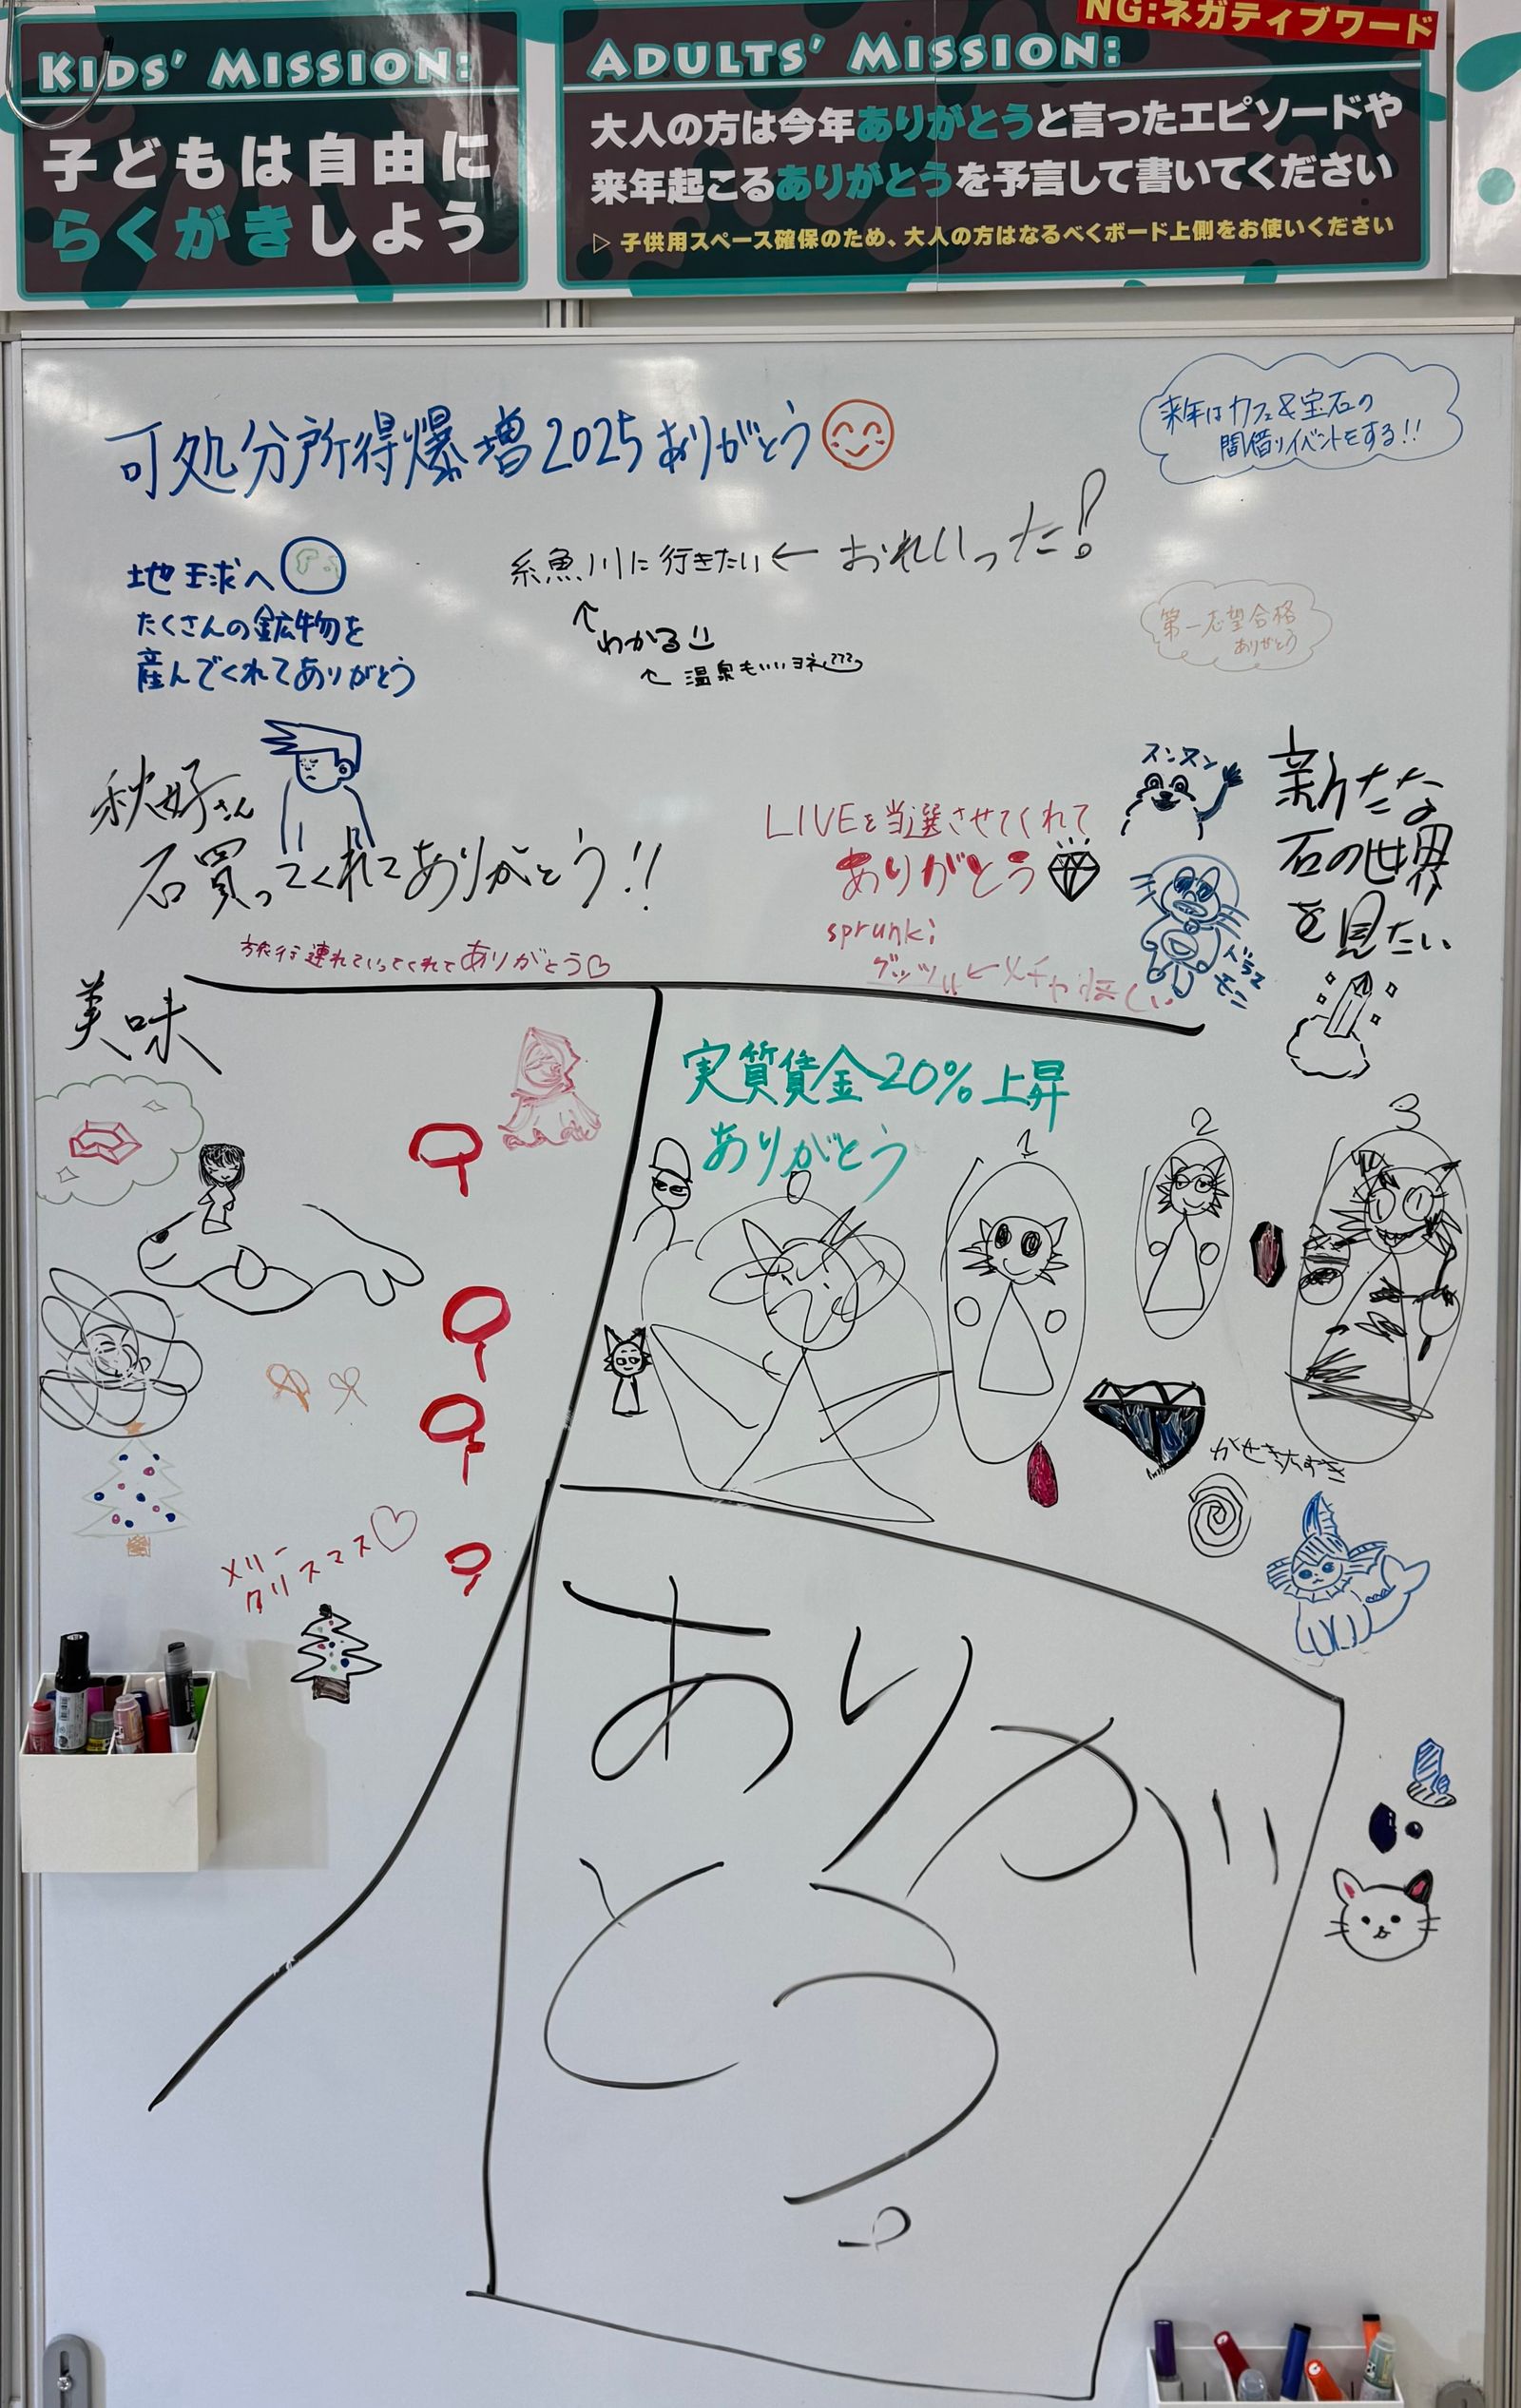 KIDS' MISSION:
子どもは自由に
らくがきしよう
NG:ネガティブワード
ADULTS' MISSION:
大人の方は今年ありがとうと言ったエピソードや
来年起こるありがとうを予言して書いてください
▷ 子供用スペース確保のため、大人の方はなるべくボード上側をお使いください
可処分所得爆増2025ありがとう
来年はカフェ&宝石の
間借りイベントをする!!
地球へ
たくさんの鉱物を
産んでくれてありがとう
糸魚川に行きたい ← おれいった!
↑
わかる
← 温泉もいいヨネ
第一志望合格
ありがとう
秋好さん
石買ってくれてありがとう!!
スンスン
新たな
石の世界
を見たい
LIVEを当選させてくれて
ありがとう
sprunki
グッツ ← メチャほしい
旅行連れていってくれてありがとう♡
美味
実質賃金20%上昇
ありがとう
0
1
2
3
かせき大すき
メリー
クリスマス♡
ありが
とう